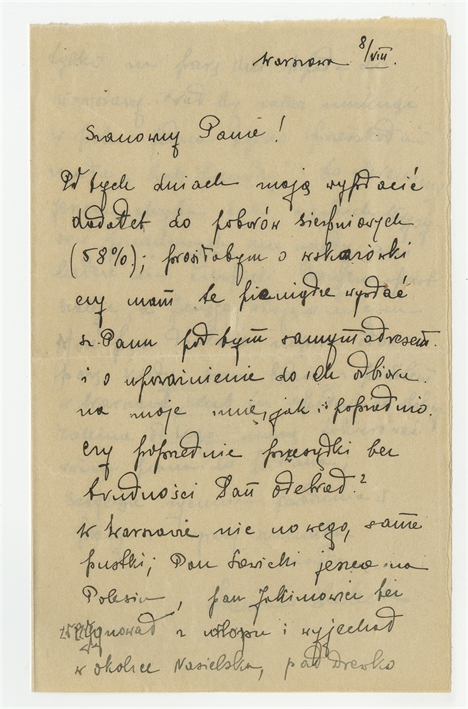 Warszawa 8/VIII.
Szanowny Panie!
W tych dniach mają wypłacić
dodatek do poborów sierpniowych
(58%); prosiłabym o wskazówki
czy mam te pieniądze wysłać
sz. Panu pod tym samym adresem.
i o upoważnienie do ich odbioru
na moje imię, jak i poprzednio.
czy poprzednie przesyłki bez
trudności Pan odebrał?
W Warszawie nic nowego, same
pustki; Pan Sawicki jeszcze na
Polesiu, pan Jakimowicz też
zrezygnował z urlopu i wyjechał
w okolice Nasielska, pan Drewko